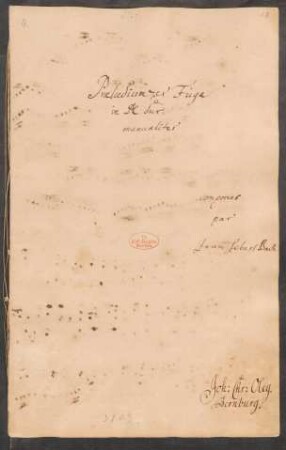 Præludium et Fuga
in A dur.
manualiter
composées
par
Jean Sebast. Bach
Joh: Chr: Oley.
Bernburg.